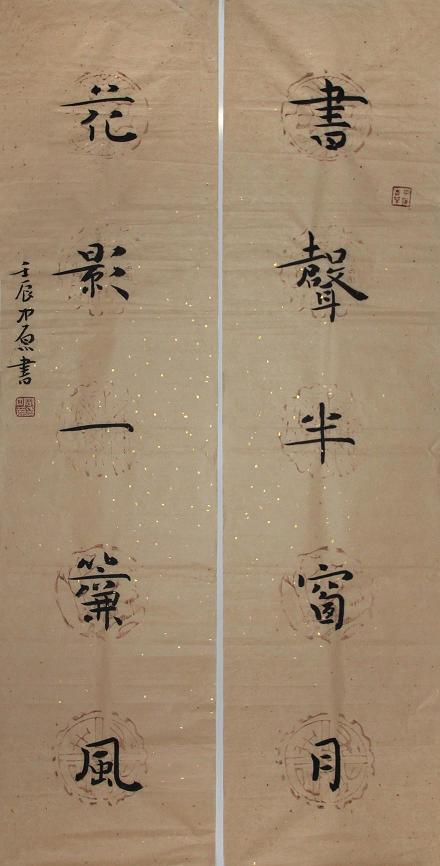 書聲半窗月
花影一簾風
壬辰中原書